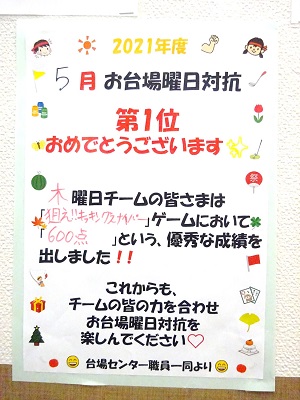 2021年度
5月お台場曜日対抗
第1位
おめでとうございます
木曜日チームの皆さまは
「狙え!!キッキングスナイパー」ゲームにおいて
「600点」という、優秀な成績を
出しました!!
これからも、
チームの皆の力を合わせ
お台場曜日対抗を
楽しんでください♡
台場センター職員一同より
祭